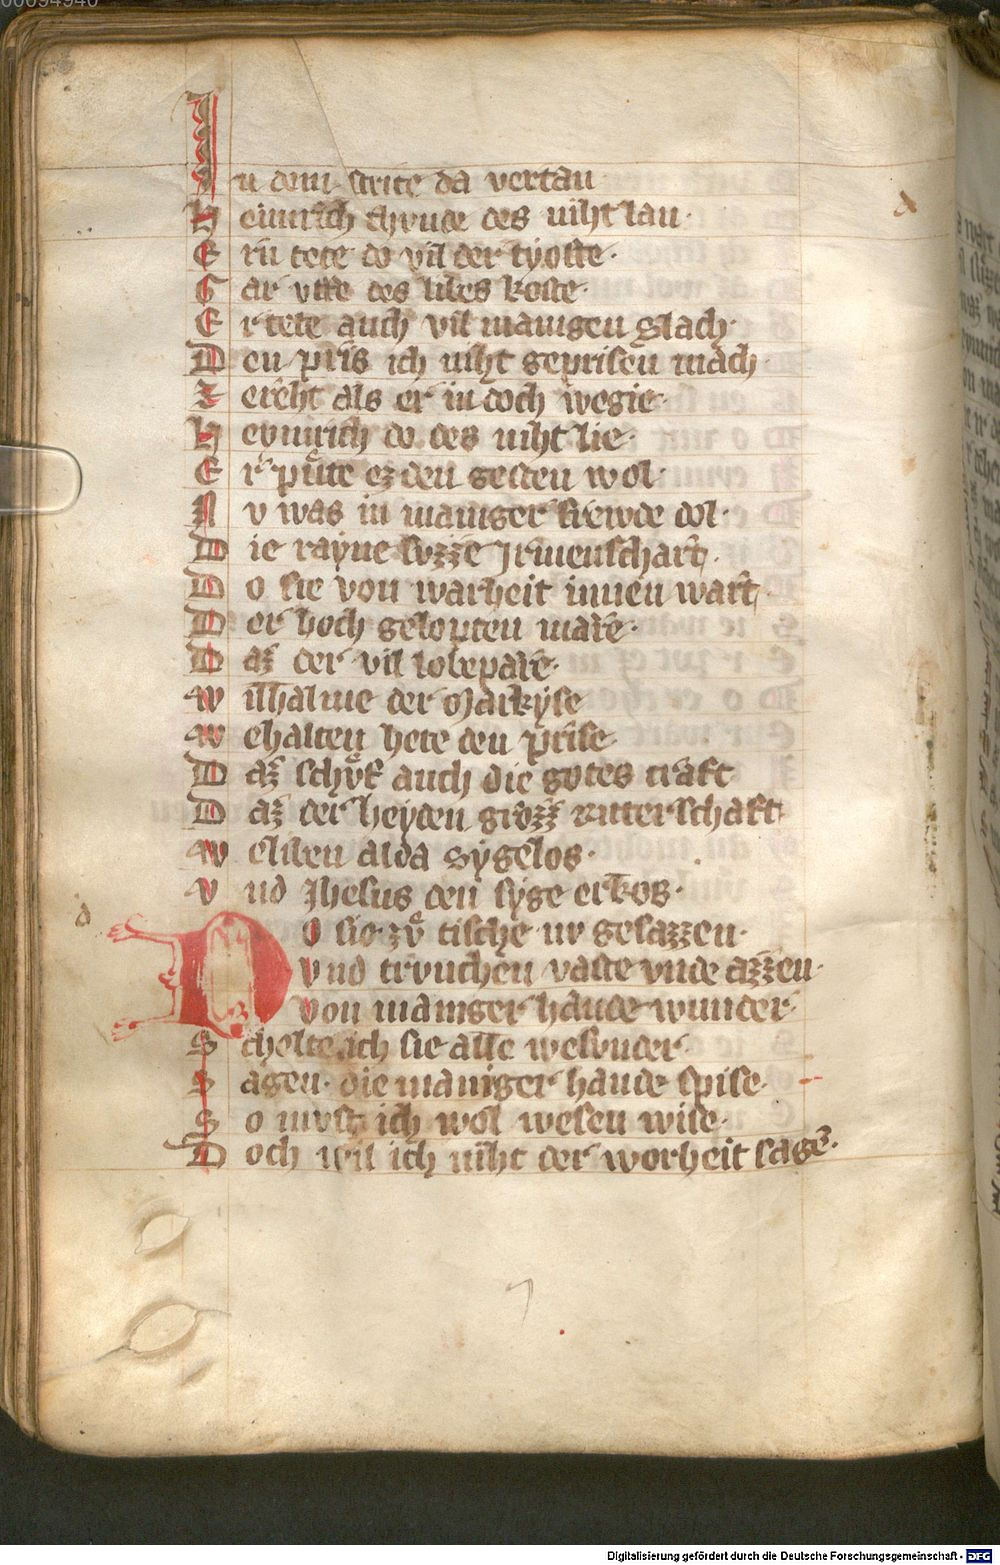 00094940
In dem strite da vertan
Heinrich chvnde des niht lan·
Ern tete do vil der tyoste·
Gar vffe des libes koste·
Er tete auch vil manigen slach·
Den pris ich niht geprisen mach·
Zereht als er in doch wegie·
Heynrich do des niht lie·
Er pvͦte ez den gesten wol·
Nv was in maniger frewde dol·
Die rayne svzze Jrmenschart·
Do sie von warheit innen wart·
Der hoch gelopten mare·
Daz der vil lobepare·
Willhalme der Markyse
Wehalten hete den prise·
Daz schvͦf auch die gotes craft
Daz der heyden grozz ritterschaft
Weliben alda sygelos·
Vnd Jhesus den syge erkos·
Do sie zvͦ tische nv gesazzen·
Vnd trvnchen vaste vnde azzen·
Von maniger hande wunder·
Scholte ich sie alle wesvnder·
Sagen· die maniger hande spise·
So mvst ich wol wesen wise·
Doch wil ich niht der worheit sagē·
d
Digitalisierung gefördert durch die Deutsche Forschungsgemeinschaft - DFG